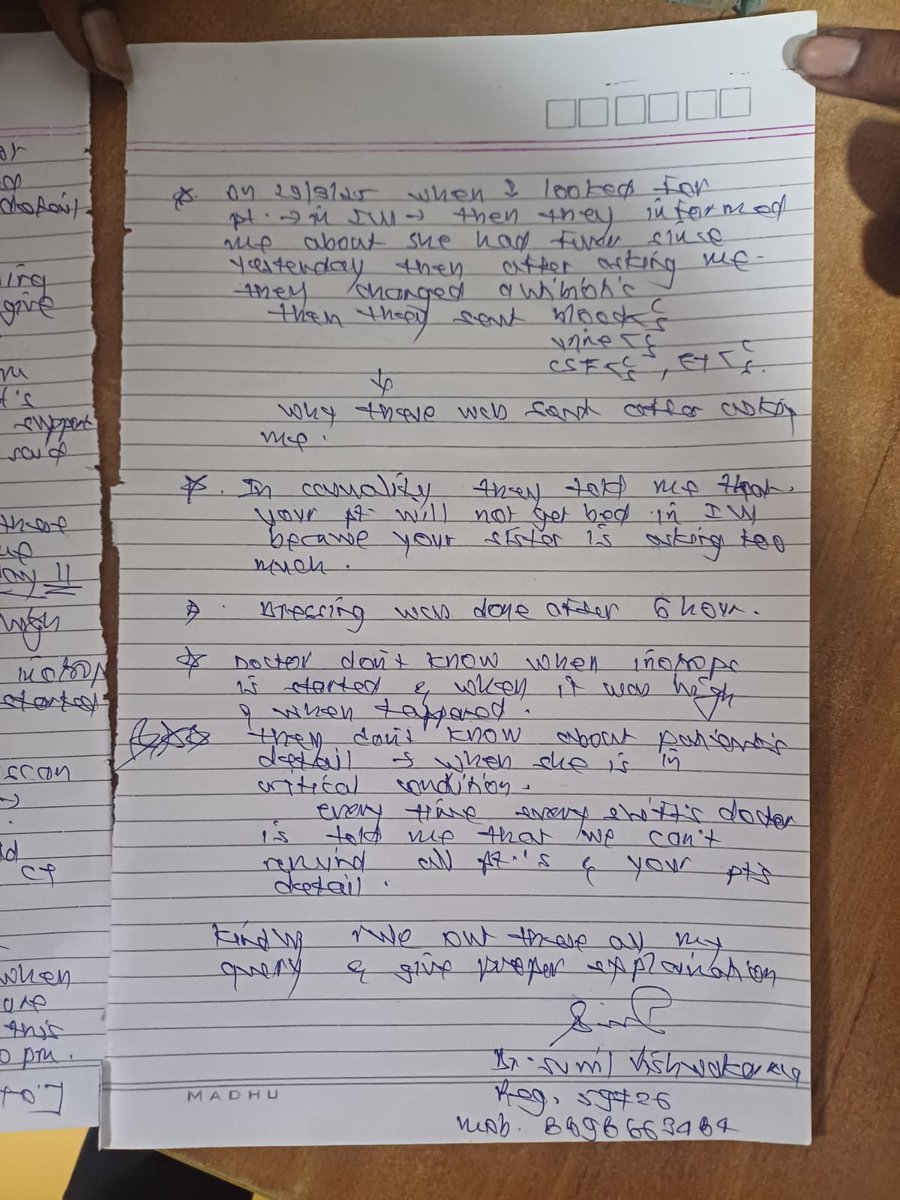 or
ing
give
m
t's
support
said
these
up
day 11
high
inotrop
started
scan
→
CT
when
are
this
pm.
P.T.O
* On 29/9/25 when I looked for
pt. → in ICU → then they informed
me about she had fever since
yesterday then after asking me
they changed antibiotic
then they sent blood < C S
urine < C S
CSF < C S , ET < C S.
↓
why these was sent after asking
me.
* In casuality they told me that
your pt will not get bed in ICU
because your sister is asking too
much.
* Dressing was done after 6 hour.
* Doctor don't know when inotrope
is started & when it was high
& when tappered.
they don't know about patient's
detail → when she is in
critical condition.
every time every shift's doctor
is told me that we can't
remind all pt.'s & your pts
detail.
Kindly rule out these all my
query & give proper explaination
Dr. Sunil Vishwakarma
Reg. 59726
Mob. 8898663484
MADHU